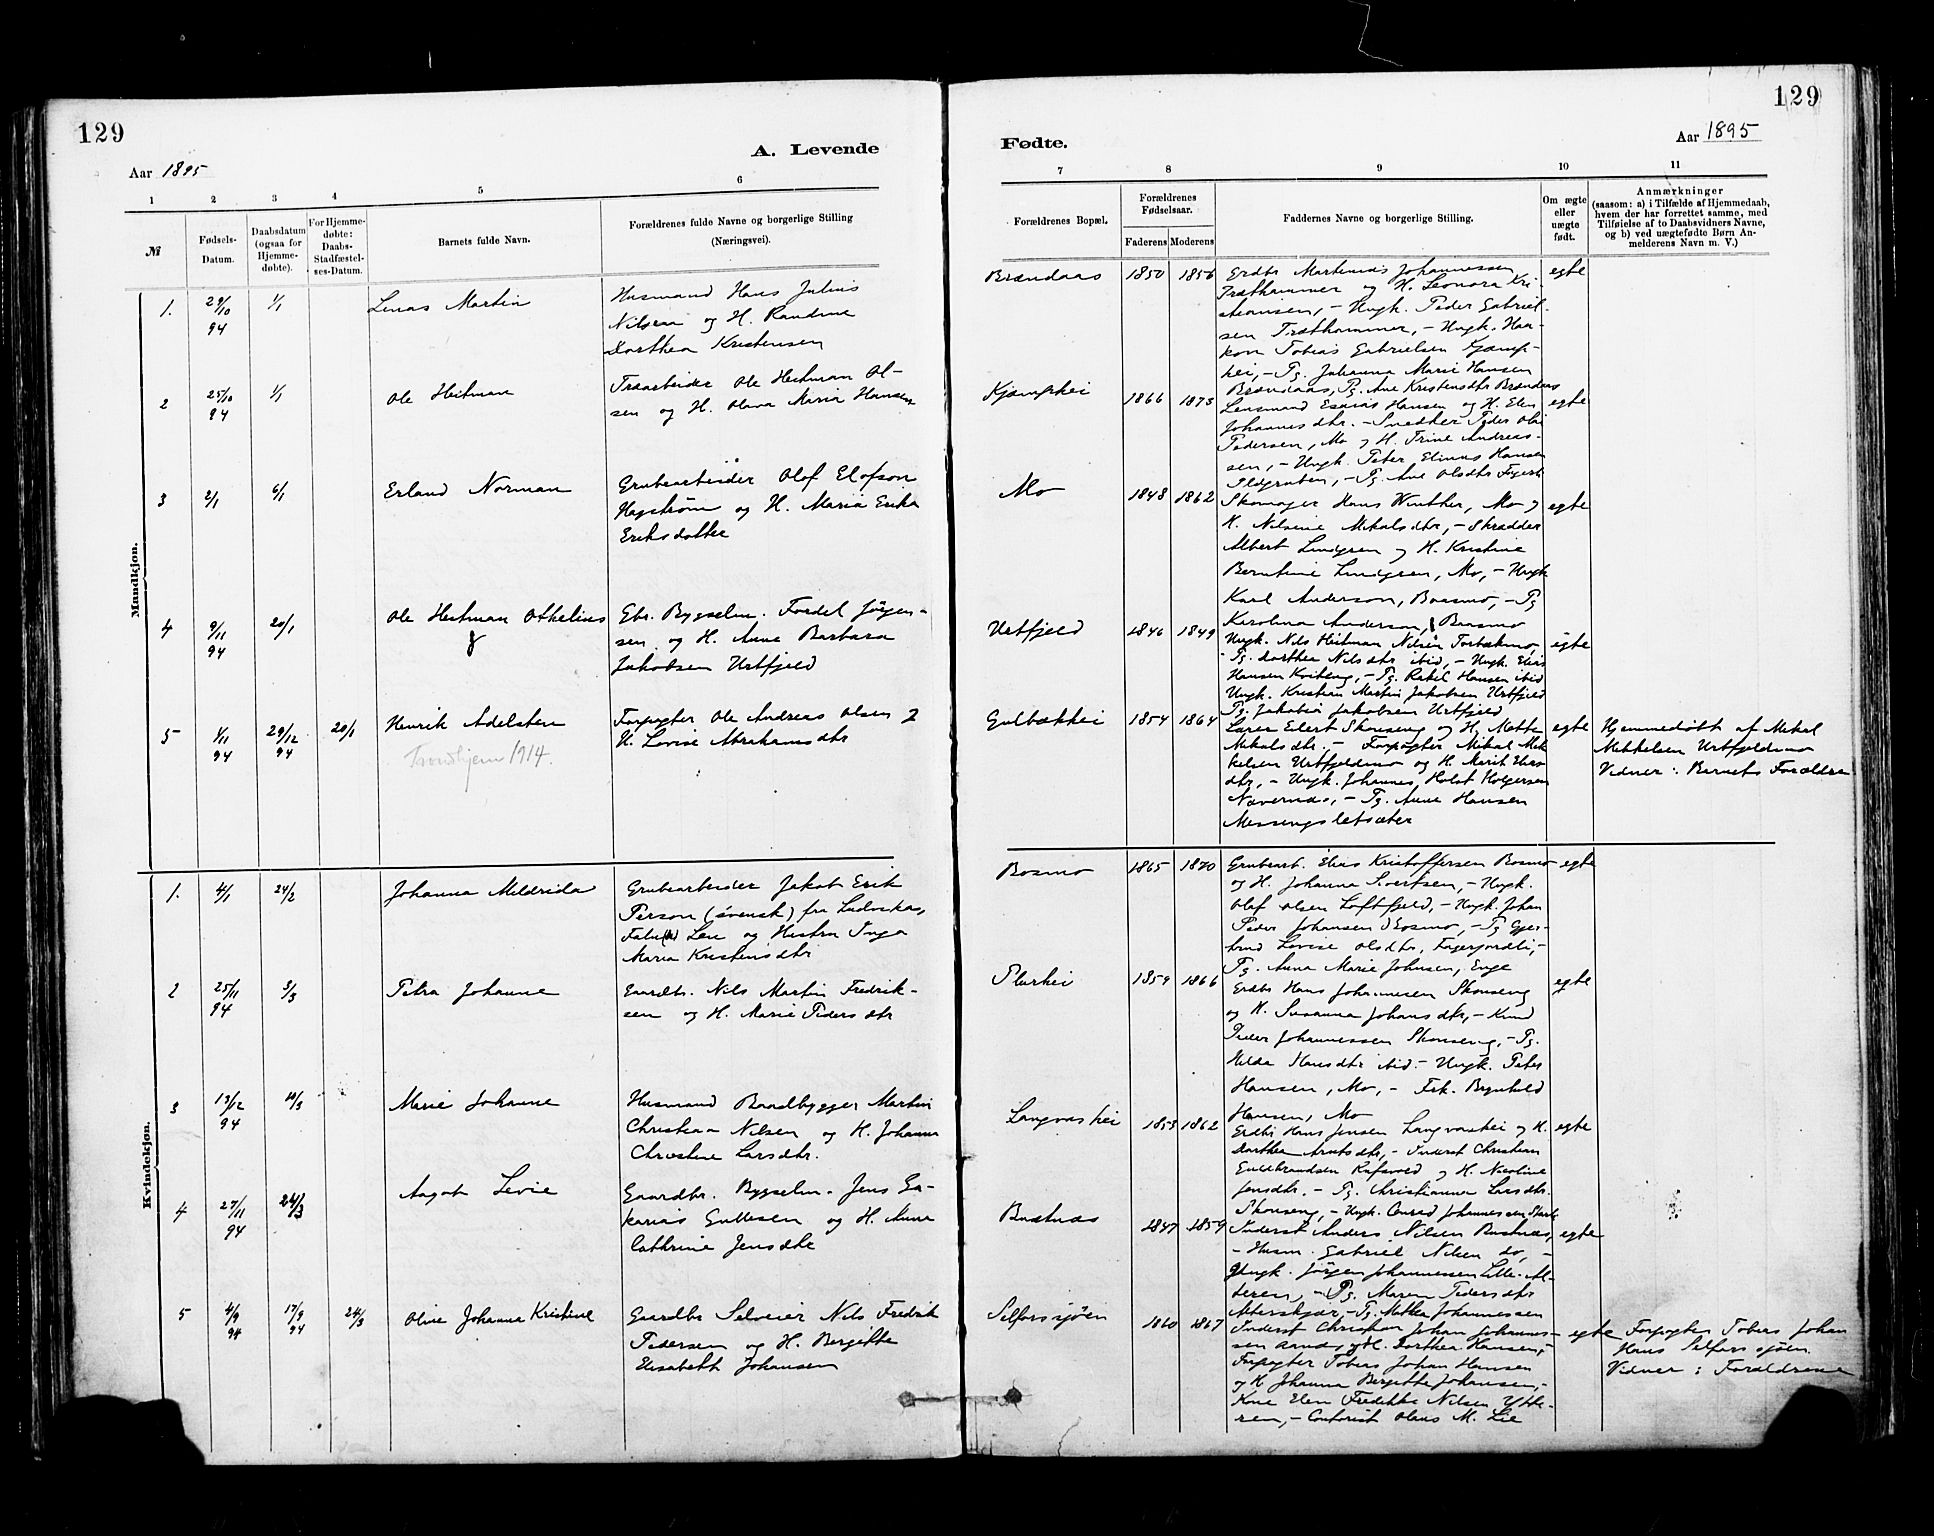 129
Aar 1895
A. Levende
1 2 3 4 5 6
№
Fødsels-Datum.
Daabsdatum (ogsaa for Hjemmedøbte).
For Hjemmedøbte: Daabs-Stadfæstelses-Datum.
Barnets fulde Navn.
Forældrenes fulde Navne og borgerlige Stilling
(Næringsvei).
Mandkjøn.
1. 29/10 94 1/1 Linas Martin
Husmand Hans Julius
Nilsen og H. Randine
Dorthea Kristensen
2 25/10 94 1/1 Ole Heitman
Træarbeider Ole Heitman Ol-
sen og H. Olava Maria Hansen
3 2/1 6/1 Erland Norman
Grubearbeider Olof Elofson
Hagström og H. Maria Erika
Eriksdatter
4 9/11 94 20/1 Ole Heitman Othelius
Gbr. Bygselm. Fordel Jørgen-
sen og H. Anne Barbara
Jakobsen Urtfjeld
5 1/11 94 29/12 94 20/1 Henrik Adelsten
Trondhjem 1914.
Forpagter Ole Andreas Olsen og
H. Lovise Abrahamsdtr
Kvindekjøn.
1. 4/1 24/2 Johanna Meldrida
Grubearbeider Jakob Erik
Person (svensk) fra Ludvika,
Falu Län og Hustru Inga
Maria Kristensdtr
2 25/11 94 3/3 Petra Johanne
Gaardbr. Nils Martin Fredrik-
sen og H. Marie Pedersdtr
3 13/12 94 10/3 Marie Johanne
Husmand Baadbygger Martin
Christian Nilsen og H. Johanna
Christine Larsdtr.
4 27/11 94 24/3 Aagot Levie
Gaardbr. Bygselm. Jens Za-
karias Gullesen og H. Anne
Cathrine Jensdtr
5 4/9 94 17/9 94 24/3 Oline Johanna Kristine
Gaardbr Selveier Nils Fredrik
Pedersen og H. Bergitte
Elisabeth Johansen
129
Fødte.
Aar 1895
7 8 9 10 11
Forældrenes Bopæl.
Forældrenes Fødselsaar.
Faderens Moderens
Faddernes Navne og borgerlige Stilling.
Om ægte eller uægte født.
Anmærkninger
(saasom: a) i Tilfælde af Hjemmedaab,
hvem der har forrettet samme, med
Tilføielse af to Daabsvidners Navne,
og b) ved uægtefødte Børn An-
melderens Navn m. V.)
Brændaas 1850 1856 egte
Erdbr Martinus Johannessen
Træthammer og H. Leonora Kri-
stiansen, - Ungk. Peder Gabriel-
sen Træthammer, - Ungk. Haa-
kon Tobias Gabrielsen Kjæmp-
hei, - Pg. Johanna Marie Hansen
Brændaas, Pg. Ane Kristensdtr Brændaas
Kjæmphei 1866 1873 egte
Lensmand Esaias Hansen og H. Elen
Johannesdtr. - Snedker Peder Olai
Pedersen, Mo og H. Trine Andreas-
sen, - Ungk. Peter Elinus Hansen
Plugruben, - Pg. Ane Olsdtr
Mo 1848 1862 egte
Skomager Hans Winther, Mo og
H. Nilsine Mikalsdtr, - Skrædder
Albert Lindgren og H. Kristine
Berntine Lindgren, Mo, - Ungk
Karl Anderson, Bosmo, - Pg
Karolina Anderson, Bosmo
Urtfjeld 1846 1849 egte
Ungk. Nils Heitman Nilsen Fortbækmo,
- Pg. Dorthea Nilsdtr ibid, - Ungk. Elias
Hansen Kviteng, - Pg. Rakel Hansen ibid
Ungk. Kristian Martin Jakobsen Urtfjeld
Pg. Jakobia Jakobsen Urtfjeld
Gulbækhei 1854 1864 egte
Lærer Edert Skonseng og H. Mette
Mikalsdtr. - Forpagter Mikal Mik-
kelsen Urtfjeldmo og H. Marit Elias
dtr, - Ungk. Johannes Holst Holgersen
Nævernæs, - Pg. Anne Hansen
Messingsletsæter
Hjemmedøbt af Mikal
Mikkelsen Urtfjeldmo
Vidner: Barnets Forældre
Bosmo 1865 1870 egte
Grubearb. Elias Kristoffersen Bosmo
og H. Johanna Sivertsen, - Ungk.
Olaf Olsen Loftfjeld, - Ungk. Johan
Peder Johansen Bosmo, - Pg Gjer-
trud Lovise Olsdtr, Fagerjordli, -
Pg. Anna Marie Johnsen, Enge
Plurhei 1859 1866 egte
Erdbr Hans Johannesen Skonseng
og H. Susanna Johansdtr, - Knud
Peder Johannessen Skonseng, - Pg.
Hilda Hansdtr ibid. - Ungk. Peter
Hansen, Mo, - Frk. Brynhild
Hansen, Mo
Langvashei 1853 1862 egte
Erdbr Hans Jensen Langvashei og H.
Dorthea Arntsdtr, - Inderst Christian
Guldbrandsen Rufsvold og H. Nicoline
Jensdtr. - Pg. Christianna Larsdtr.
Skonseng, - Ungk. Conrad Johannessen
Bustnæs 1847 1859 egte
Inderst Anders Nilsen Bustnæs,
- Husm. Gabriel Nilsen do, -
Ungk. Jørgen Johannessen Lille-Al-
teren, - Pg. Maren Pedersdtr
Alterskjær, - Pg. Mathea Johannessen
Selforssjøen 1860 1867 egte
Inderst Christian Johan Johannes-
sen Arnæs og H. Dorthea Hansen, -
Forpagter Tobias Johan Hansen
og H Johanna Bergitte Johansen, -
Kone Elen Fredrikke Nilsen Ytte-
ren, - Contorist Olaus M. Lie
Forpagter Tobias Johan
Hans Selforssjøen
Vidner: Forældrene